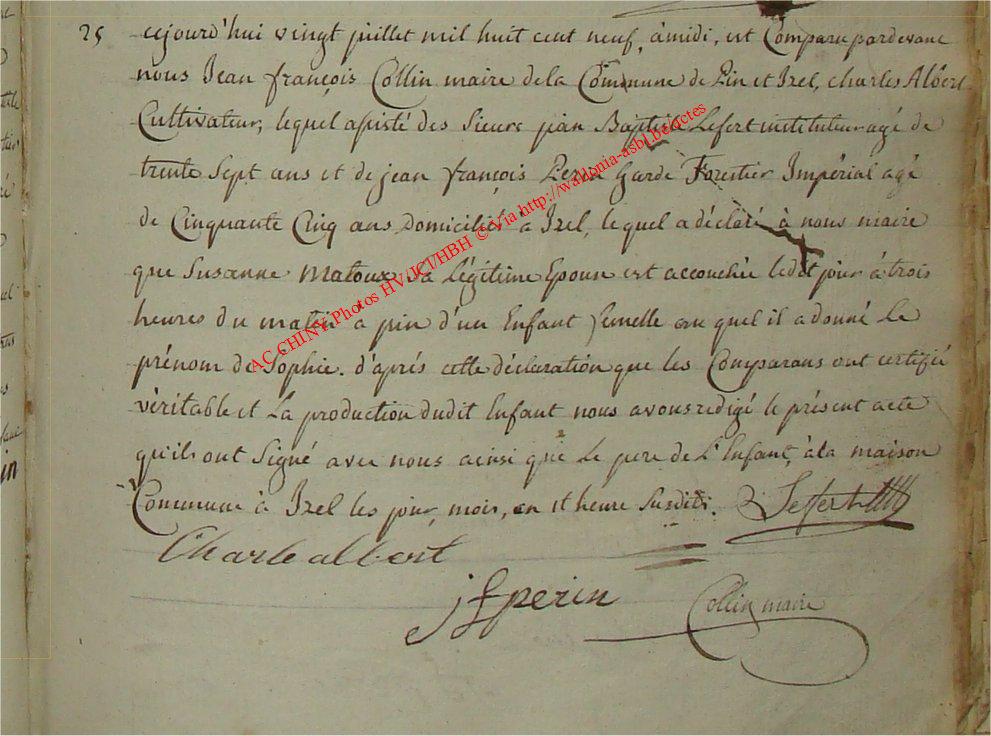 25 cejourd'hui vingt juillet mil huit cent neuf, à midi, est Comparu pardevant
nous Jean françois Collin maire de la Commune de Pin et Izel, charles Albert
Cultivateur, lequel assisté des Sieurs jean Baptiste Lefert instituteur agé de
trente Sept ans et de jean françois Perin Garde Forestier Impérial agé
de Cinquante Cinq ans Domiciliés à Izel, lequel a déclaré à nous maire
que Susanne Matoux Sa Légitime Epouse est accouchée ledit jour à trois
heures du matin a pin d'un Enfant femelle au quel il a donné Le
prénom de Sophie. d'aprés cette déclaration que les Comparans ont certifié
véritable et La production dudit Enfant nous avons redigé le présent acte
qu'ils ont Signé avec nous ainsi que Le pere de L'Enfant, à la maison
Commune à Izel les jour, mois, an et heure Susdits. Lefert
Charle albert
jf perin
Collin maire
AC CHINY Photos HV/JCT/HBH © Via http://wallonia-asbl.be/actes